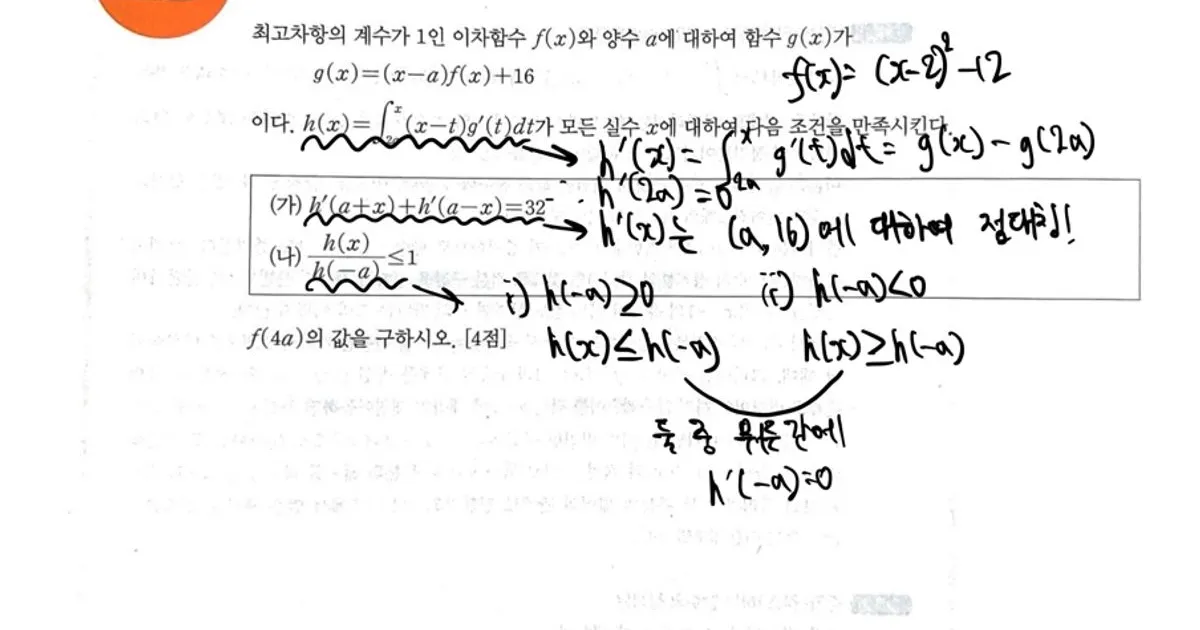 최고차항의 계수가 1인 이차함수 f(x)와 양수 a에 대하여 함수 g(x)가
g(x)=(x-a)f(x)+16
f(x)= (x-2)²-12
이다. h(x)=∫₂ₐˣ(x-t)g′(t)dt가 모든 실수 x에 대하여 다음 조건을 만족시킨다.
h′(x)= ∫₂ₐˣ g′(t)dt = g(x)-g(2a)
h′(2a)=0
(가) h′(a+x)+h′(a-x)=32
h′(x)는 (a,16)에 대하여 점대칭!
(나) h(x)/h(-a)≤1
i) h(-a)≥0 ii) h(-a)<0
f(4a)의 값을 구하시오. [4점]
h(x)≤h(-a) h(x)≥h(-a)
둘 중 뭐든간에
h′(-a)=0